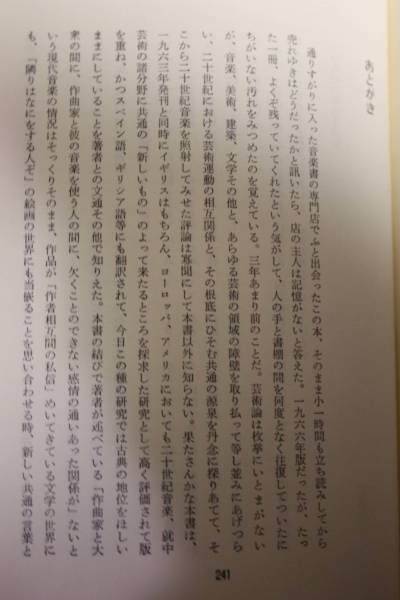 あとがき
通りすがりに入った音楽書の専門店でふと出会ったこの本、そのまま小一時間も立ち読みしてから
売れゆきはどうだったかと訊いたら、店の主人は記憶がないと答えた。一九六六年版だったが、たっ
た一冊、よくぞ残っていてくれたという気がして、人の手と書棚の間を何度となく往復してついたに
ちがいない汚れをみつめたのを覚えている。三年あまり前のことだ。芸術論は枚挙にいとまがない
が、音楽、美術、建築、文学その他と、あらゆる芸術の領域の障壁を取り払って等し並みにあげつら
い、二十世紀における芸術運動の相互関係と、その根底にひそむ共通の源泉を丹念に探りあてて、そ
こから二十世紀音楽を照射してみせた評論は寡聞にして本書以外に知らない。果たさんかな本書は、
一九六三年発刊と同時にイギリスはもちろん、ヨーロッパ、アメリカにおいても二十世紀音楽、就中
芸術の諸分野に共通の「新しいもの」のよって来たるところを探求した研究として高く評価されて版
を重ね、かつスペイン語、ギリシア語等にも翻訳されて、今日この種の研究では古典の地位をほしい
ままにしていることを著者との文通その他で知りえた。本書の結びで著者が述べている「作曲家と大
衆の間に、作曲家と彼の音楽を使う人の間に、欠くことのできない感情の通いあった関係が」ないと
いう現代音楽の情況はそっくりそのまま、作品が「作者相互間の私信」めいてきている文学の世界に
も、「隣りはなにをする人ぞ」の絵画の世界にも当嵌ることを思い合わせる時、新しい共通の言葉と
241